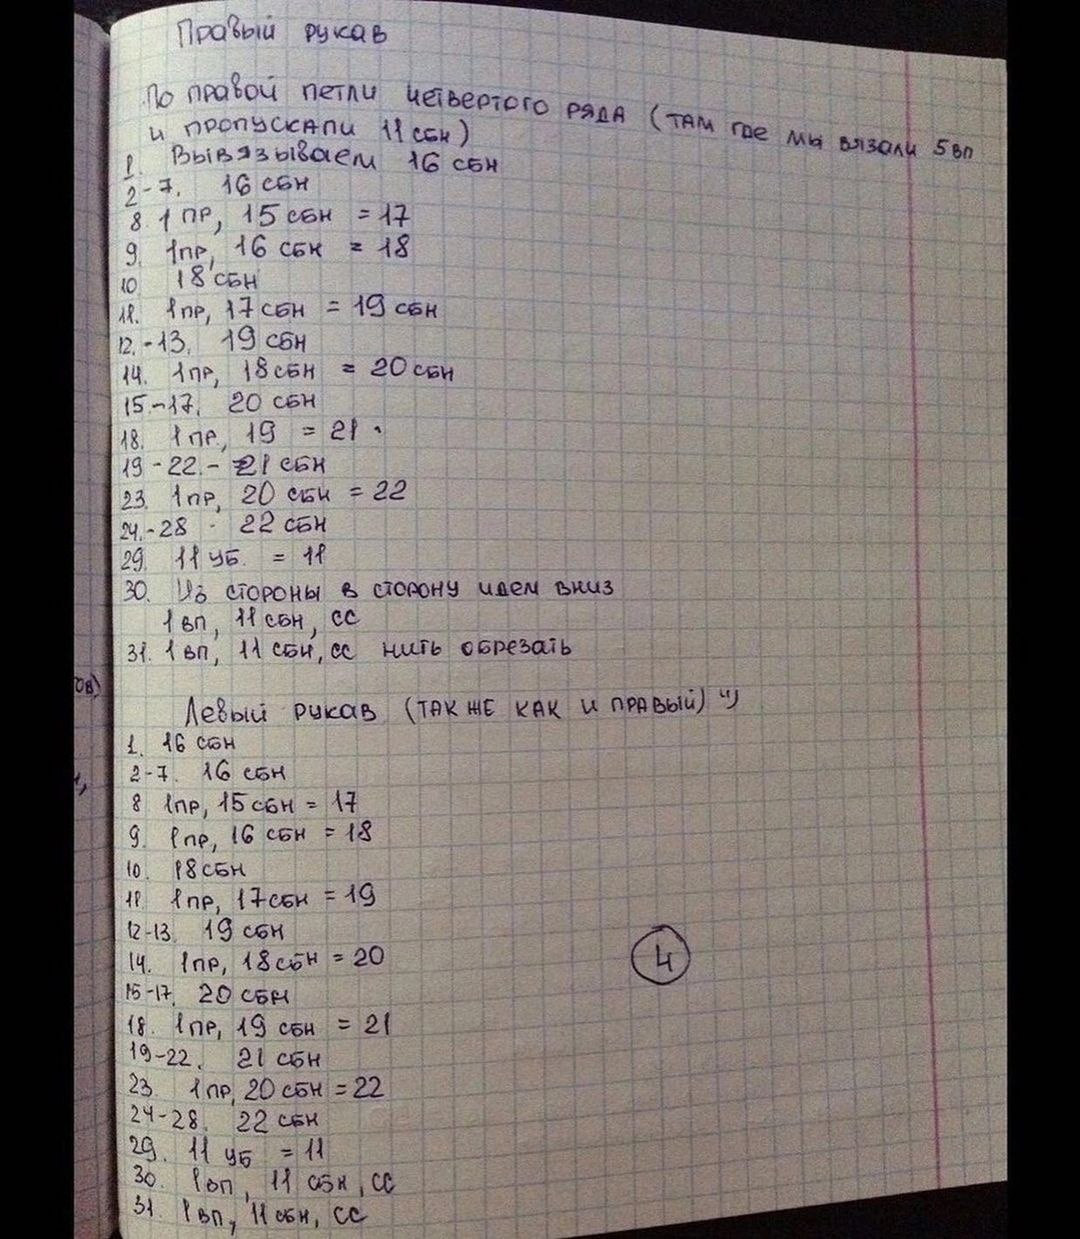 Правый рукав
По правой петли четвертого ряда (там где мы вязали 5 вп
и пропускали 11 сбн)
1. Вывязываем 16 сбн
2-7. 16 сбн
8. 1 пр, 15 сбн = 17
9. 1пр, 16 сбн = 18
10 18 сбн
11. 1пр, 17 сбн = 19 сбн
12.-13. 19 сбн
14. 1пр, 18 сбн = 20 сбн
15.-17. 20 сбн
18. 1пр, 19 = 21
19-22.- 21 сбн
23. 1пр, 20 сбн = 22
24.-28 22 сбн
29. 11 уб. = 11
30. Из стороны в сторону идем вниз
1 вп, 11 сбн, сс
31. 1 вп, 11 сбн, сс нить обрезать
ов)
Левый рукав (так же как и правый) ")
1. 16 сбн
2-7. 16 сбн
8 1пр, 15 сбн = 17
9. 1пр, 16 сбн = 18
10. 18 сбн
11. 1пр, 17 сбн = 19
12-13. 19 сбн
14. 1пр, 18 сбн = 20
4
15-17. 20 сбн
18. 1пр, 19 сбн = 21
19-22. 21 сбн
23. 1пр, 20 сбн = 22
24-28. 22 сбн
29. 11 уб = 11
30. 1вп, 11 сбн, сс
31. 1вп, 11 сбн, сс